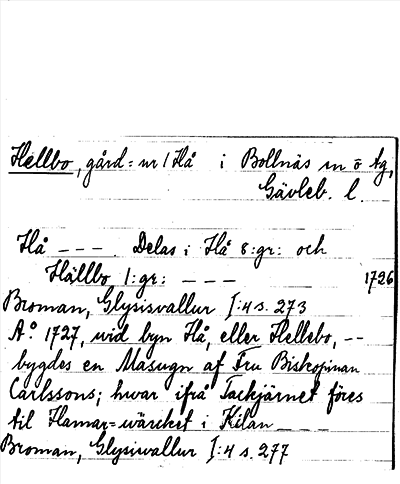 Hellbo, gård = nr 1 Hå i Bollnäs sn o tg,
Gävleb. l.
Hå - - - . Delas i Hå 8:gr: och
Hällbo 1:gr: - - - 1726
Broman, Glysisvallur I:4 s. 273
A:o 1727, wid byn Hå, eller Hellebo, - -
bygdes en Masugn af Fru Biskopinan
Carlssons; hwar ifrå Tackjärnet föres
til Hamar=wärcket i Kilan - - -
Broman, Glysisvallur I:4 s. 277